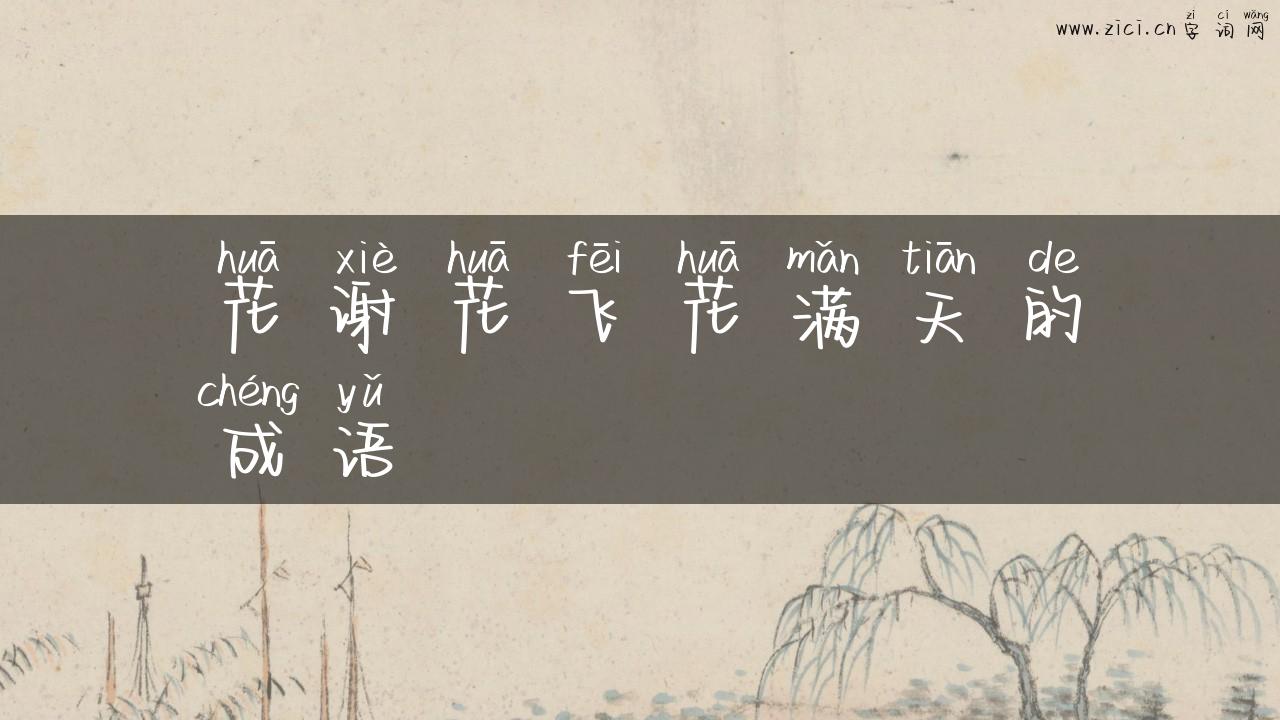 zì cí wǎng
www.zici.cn 字词网
huā xiè huā fēi huā mǎn tiān de
花谢花飞花满天的
chéng yǔ
成语